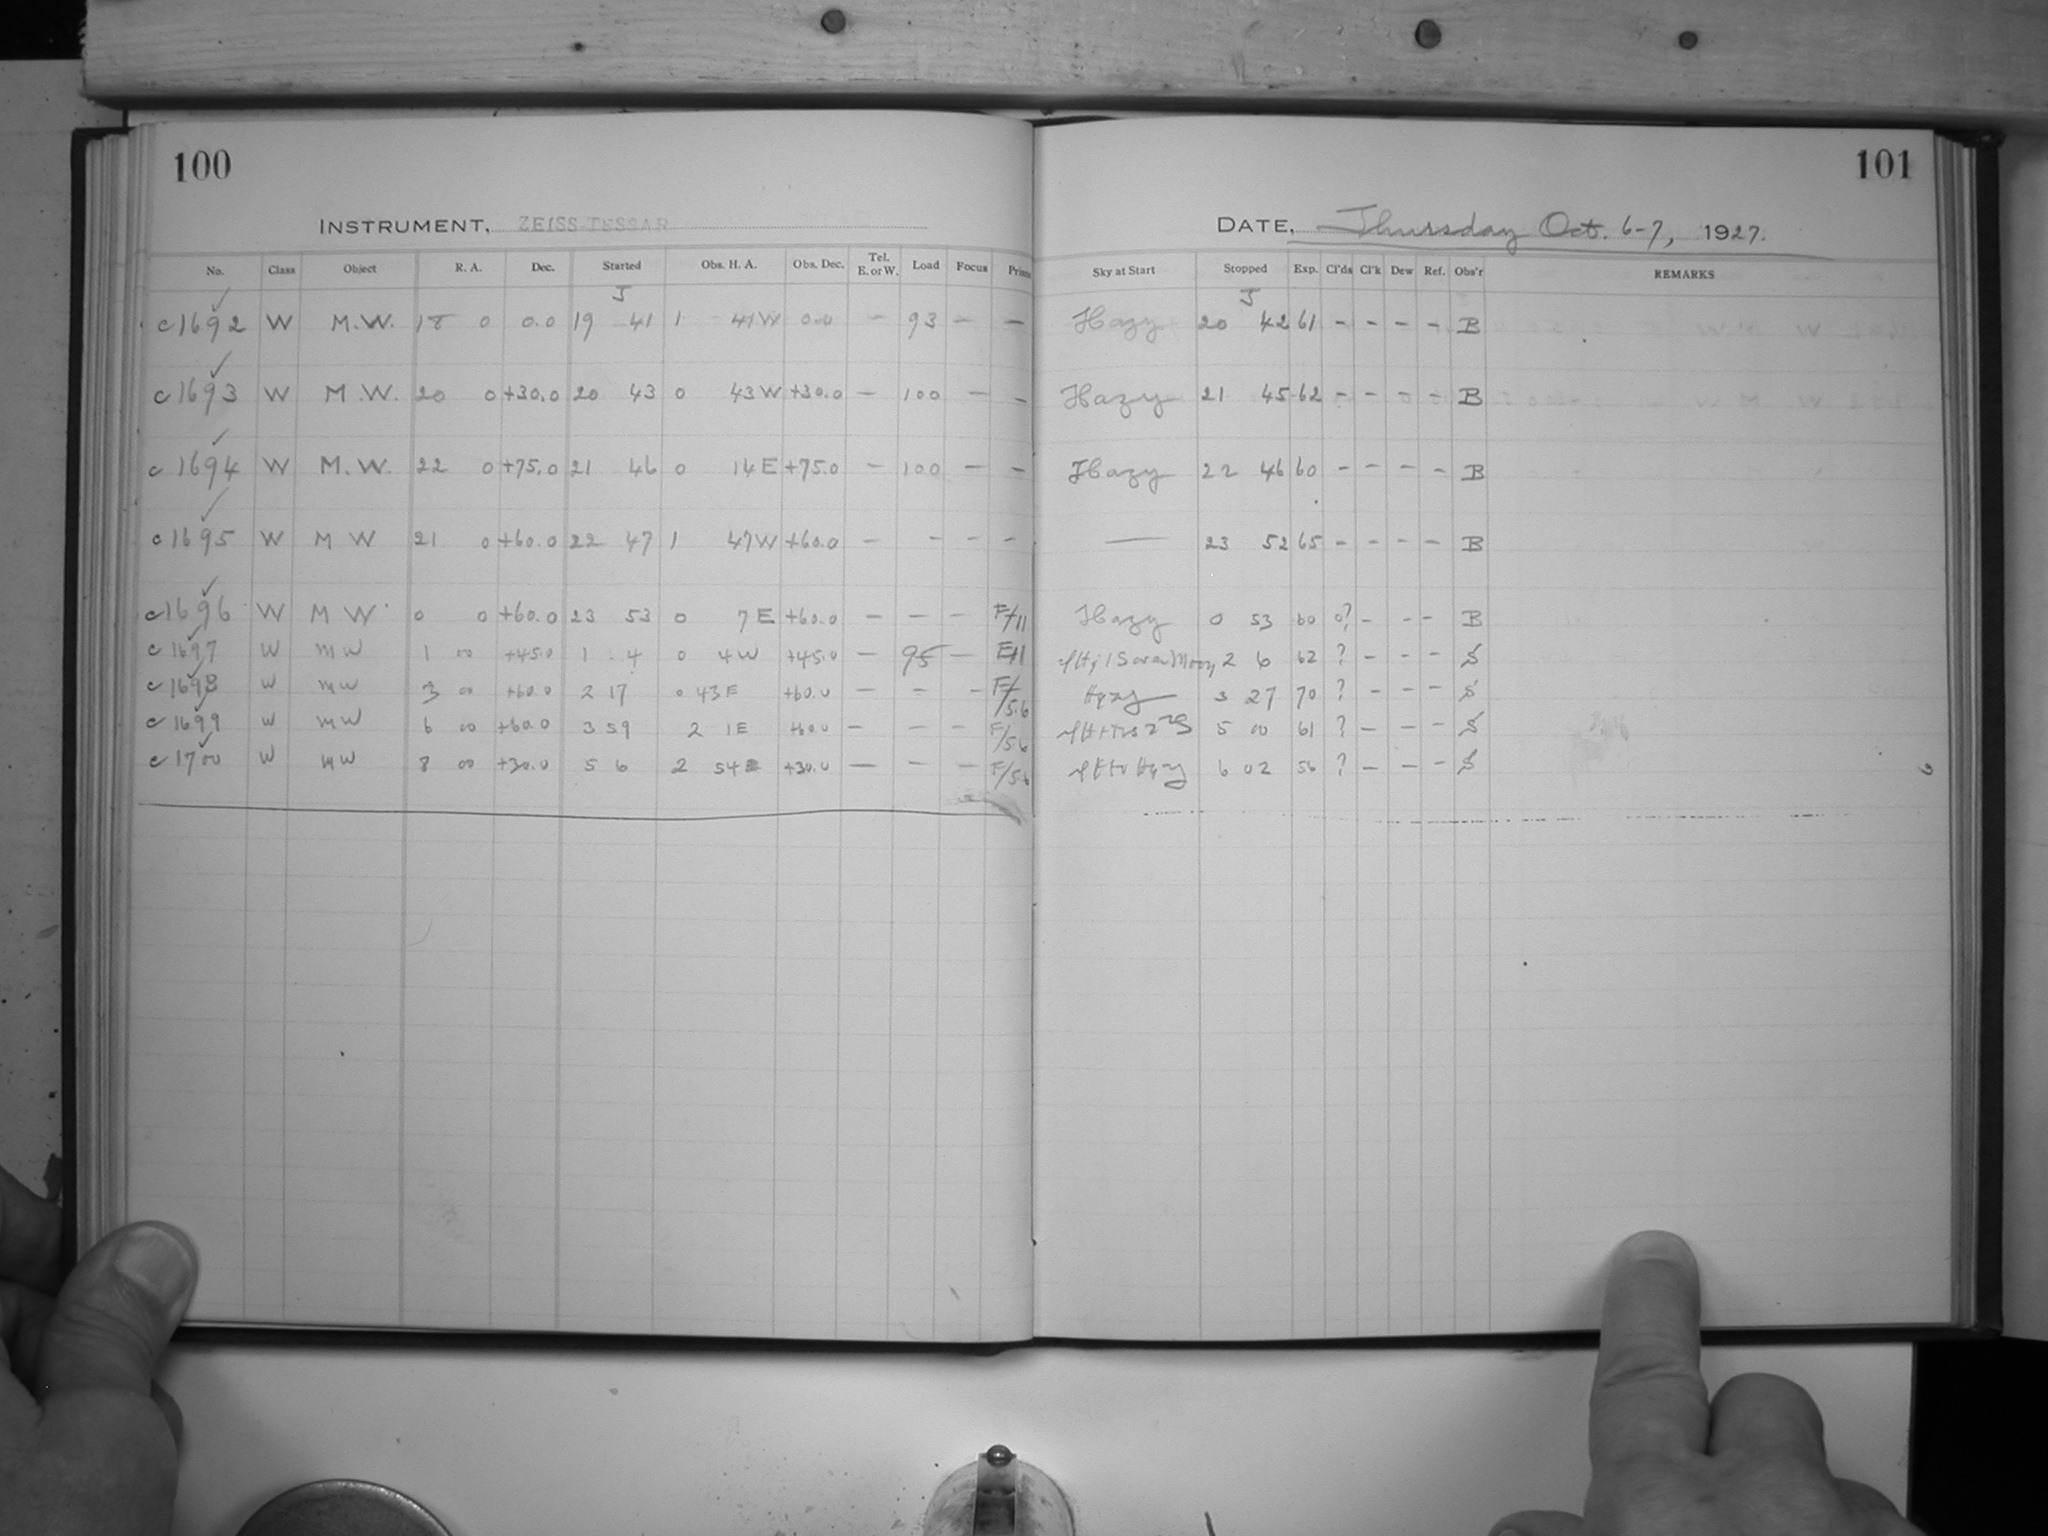 100
INSTRUMENT, ZEISS-TESSAR
No. Class Object R. A. Dec. Started Obs. H. A. Obs. Dec. Tel. E. or W. Load Focus Prism
J
c1692 W M.W. 18 0 0.0 19 41 1 41W 0.0 - 93 - -
c1693 W M.W. 20 0 +30.0 20 43 0 43W +30.0 - 100 - -
c1694 W M.W. 22 0 +75.0 21 46 0 14E +75.0 - 100 - -
c1695 W M W 21 0 +60.0 22 47 1 47W +60.0 - - - -
c1696 W M W 0 0 +60.0 23 53 0 7E +60.0 - - - F/11
c1697 W M W 1 00 +45.0 1 4 0 4W +45.0 - 95 -
c1698 W M W 3 00 +60.0 2 17 0 43E +60.0 - - - F/5.6
c1699 W M W 6 00 +60.0 3 59 2 1E +60.0 - - - F/5.6
c1700 W M W 8 00 +30.0 5 6 2 54E +30.0 - - - F/5.6
101
DATE, Thursday Oct. 6-7, 1927.
Sky at Start Stopped Exp. Cl'ds Cl'k Dew Ref. Obs'r REMARKS
J
Hazy 20 42 61 - - - - B
Hazy 21 45 62 - - - - B
Hazy 22 46 60 - - - - B
— 23 52 65 - - - - B
Hazy 0 53 60 0? - - - B
Moon, 2 6 62 ? - - - S
Hazy 3 27 70 ? - - - S
5 00 61 ? - - - S
Hazy 6 02 56 ? - - - S